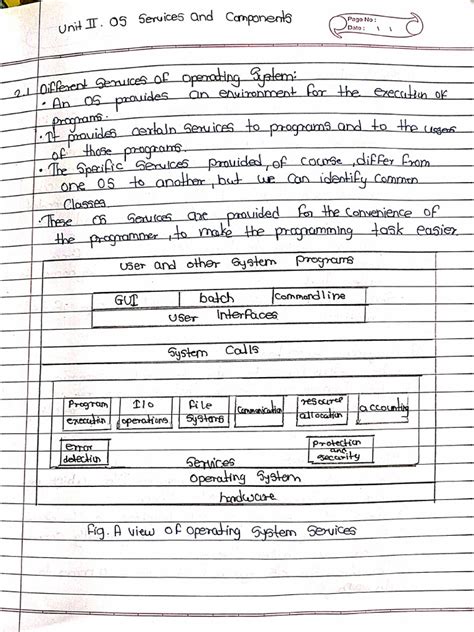 Unit II. OS Services and Components
Page No :
Date : 1 1
2.1 Different Services of Operating System:
• An OS provides an environment for the execution of
programs.
• It provides certain services to programs and to the users
of those programs.
• The Specific Services provided, of course, differ from
one OS to another, but we can identify common
Classes.
• These OS Services are provided for the convenience of
the programmer, to make the programming task easier.
User and other System Programs
GUI batch commandline
User Interfaces
System Calls
Program I/O file communication resource accounting
execution operations systems allocation
error Protection
detection and
security
Services
Operating System
hardware
Fig. A view of Operating System Services